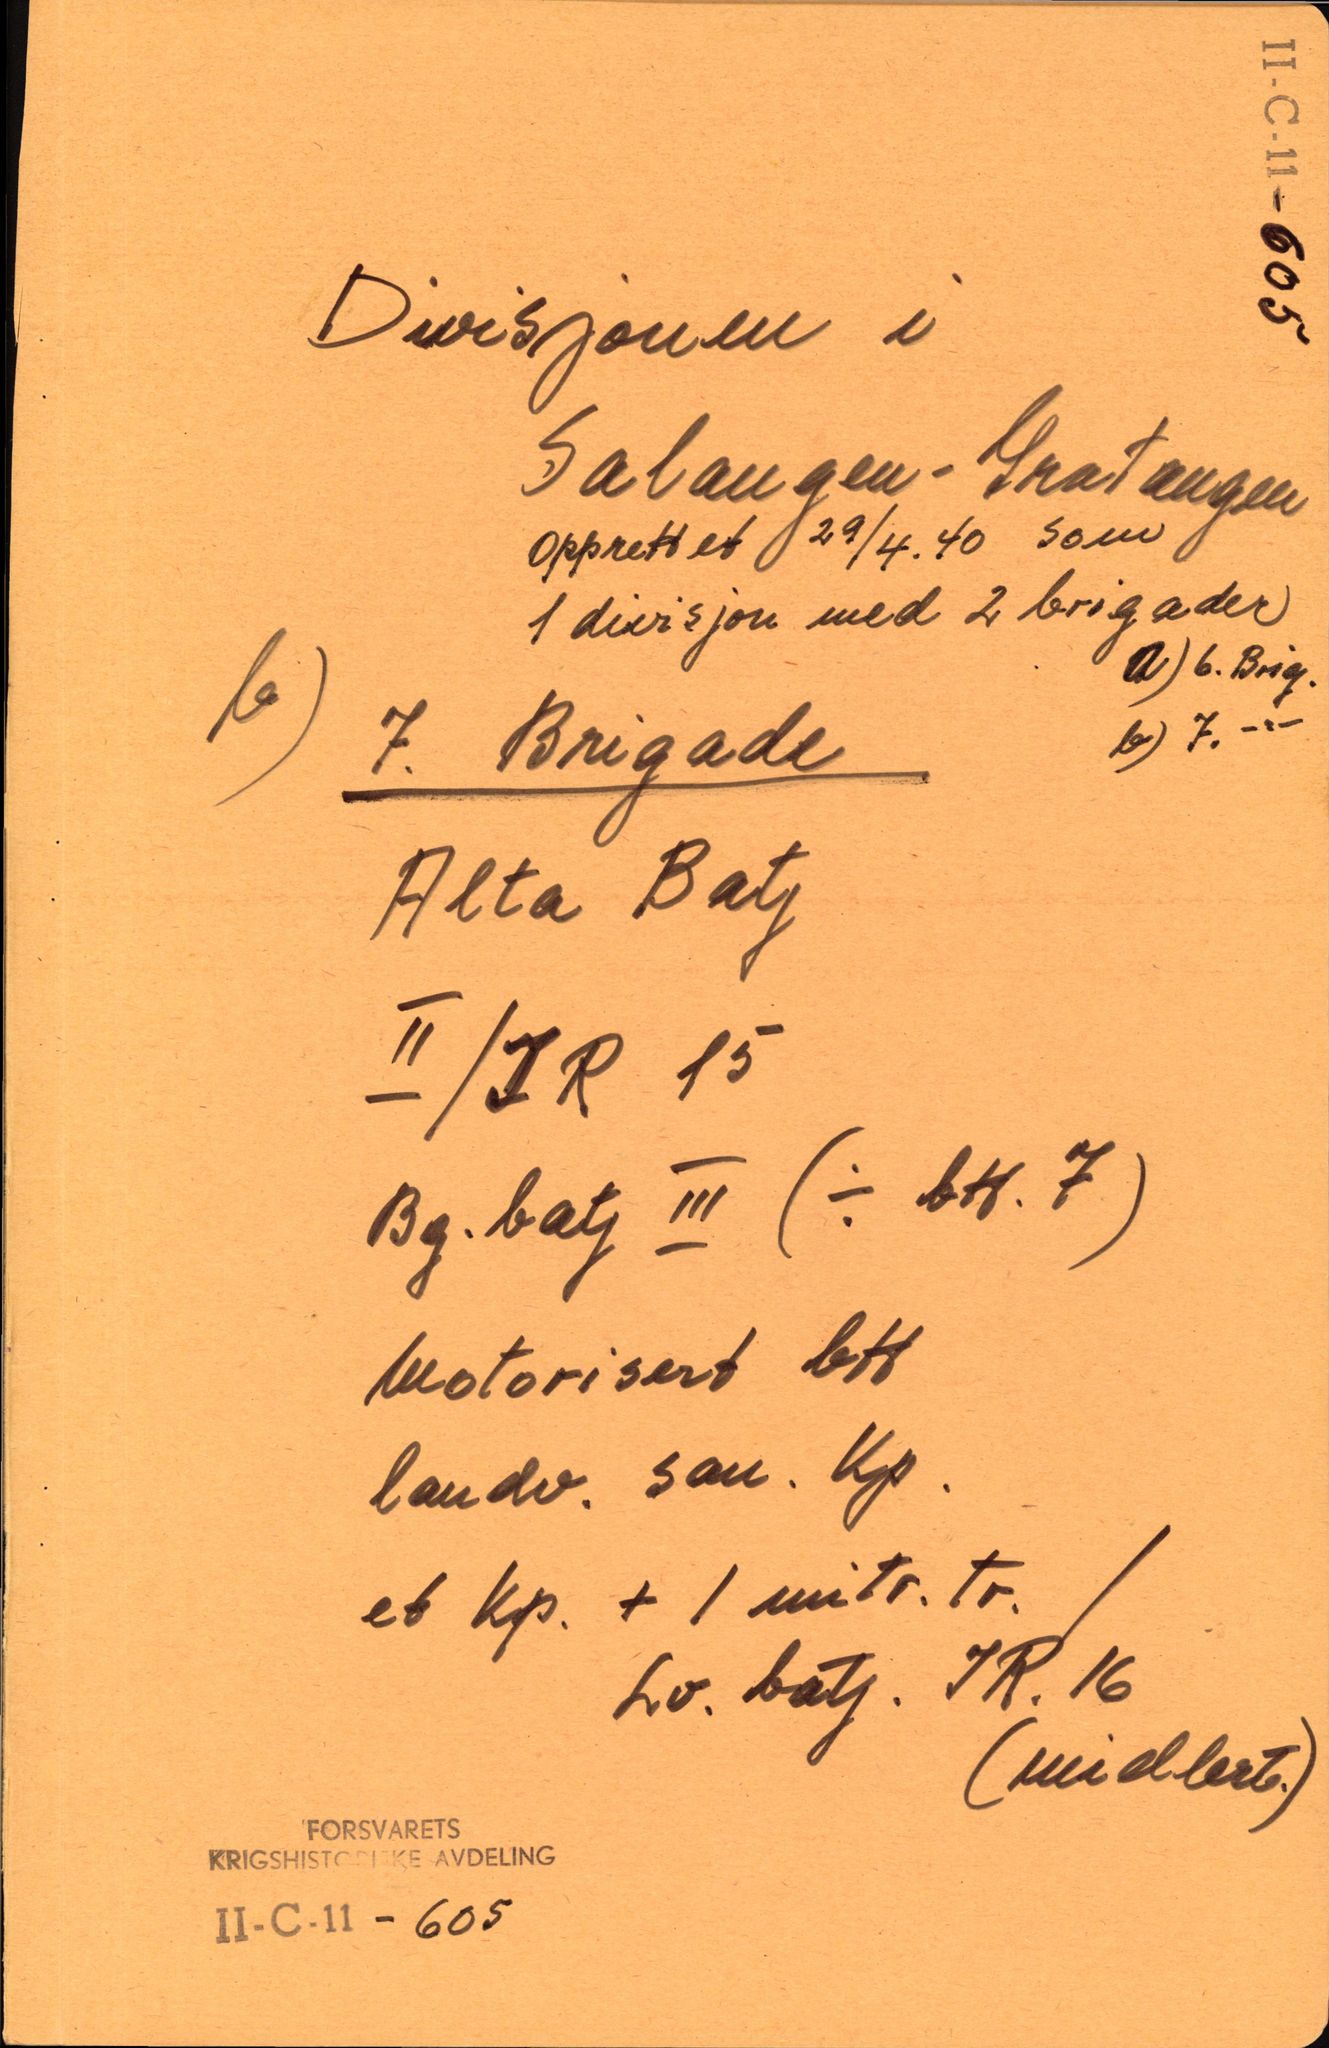 II-C-11-605
Divisjonen i
Salangen - Gratangen
opprettet 29/4.40 som
1 divisjon med 2 brigader
a) 6. Brig.
b) 7. -"-
b) 7. Brigade
Alta Batj
II/IR 15
Bg. batj III (÷ btt. 7)
Motorisert btt
landv. san. Kp.
et Kp. + 1 mitr. tr. /
Lv. batj. IR. 16
(midlert.)
FORSVARETS
KRIGSHISTORISKE AVDELING
II-C-11 - 605